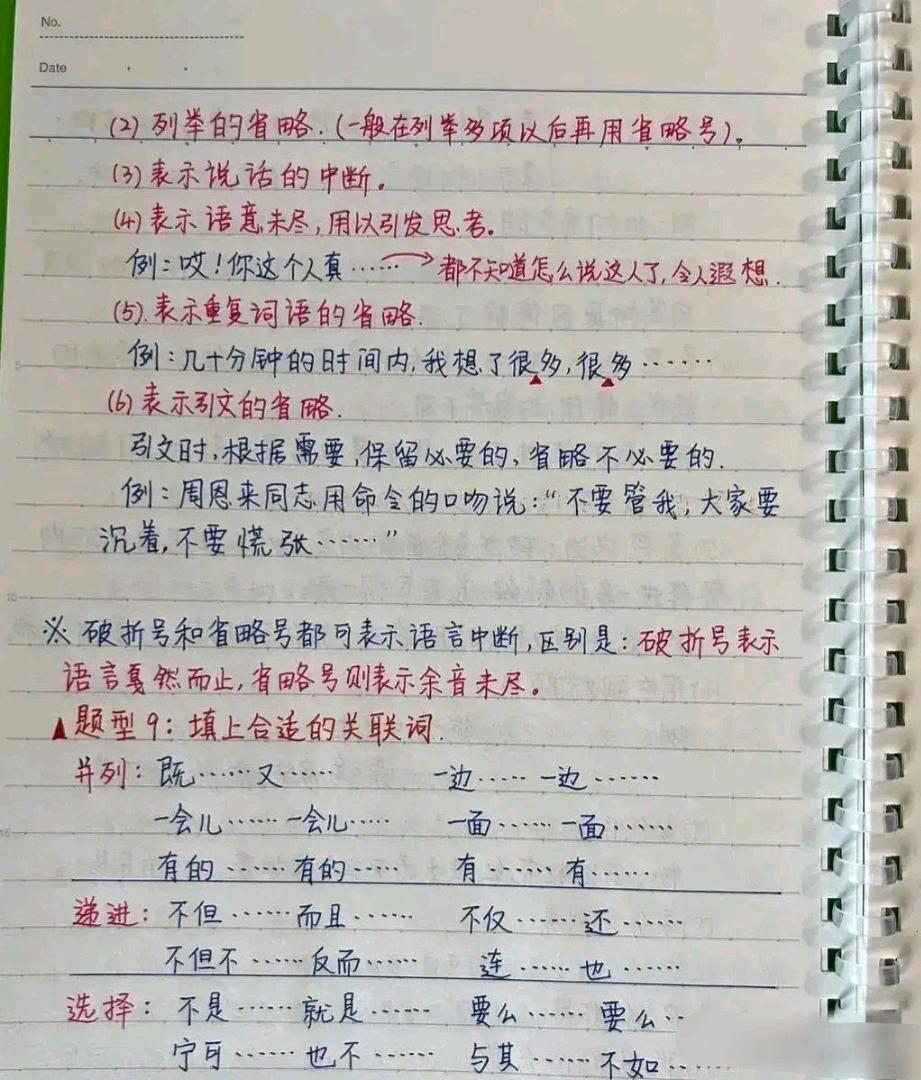 No.
Date
(2) 列举的省略.(一般在列举多项以后再用省略号)。
(3)表示说话的中断。
(4)表示语意未尽,用以引发思考。
例:哎!你这个人真…… 都不知道怎么说这人了,令人遐想.
(5).表示重复词语的省略.
例:几十分钟的时间内,我想了很多,很多……
(6)表示引文的省略.
引文时,根据需要,保留必要的,省略不必要的.
例:周恩来同志用命令的口吻说:“不要管我,大家要
沉着,不要慌张……”
※ 破折号和省略号都可表示语言中断,区别是:破折号表示
语言戛然而止,省略号则表示余音未尽。
▲题型9:填上合适的关联词.
并列:既……又…… 一边……一边……
一会儿……一会儿…… 一面……一面……
有的……有的…… 有……有……
递进:不但……而且…… 不仅……还……
不但不……反而…… 连……也……
选择:不是……就是…… 要么……要么..
宁可……也不…… 与其……不如……
5
10
15